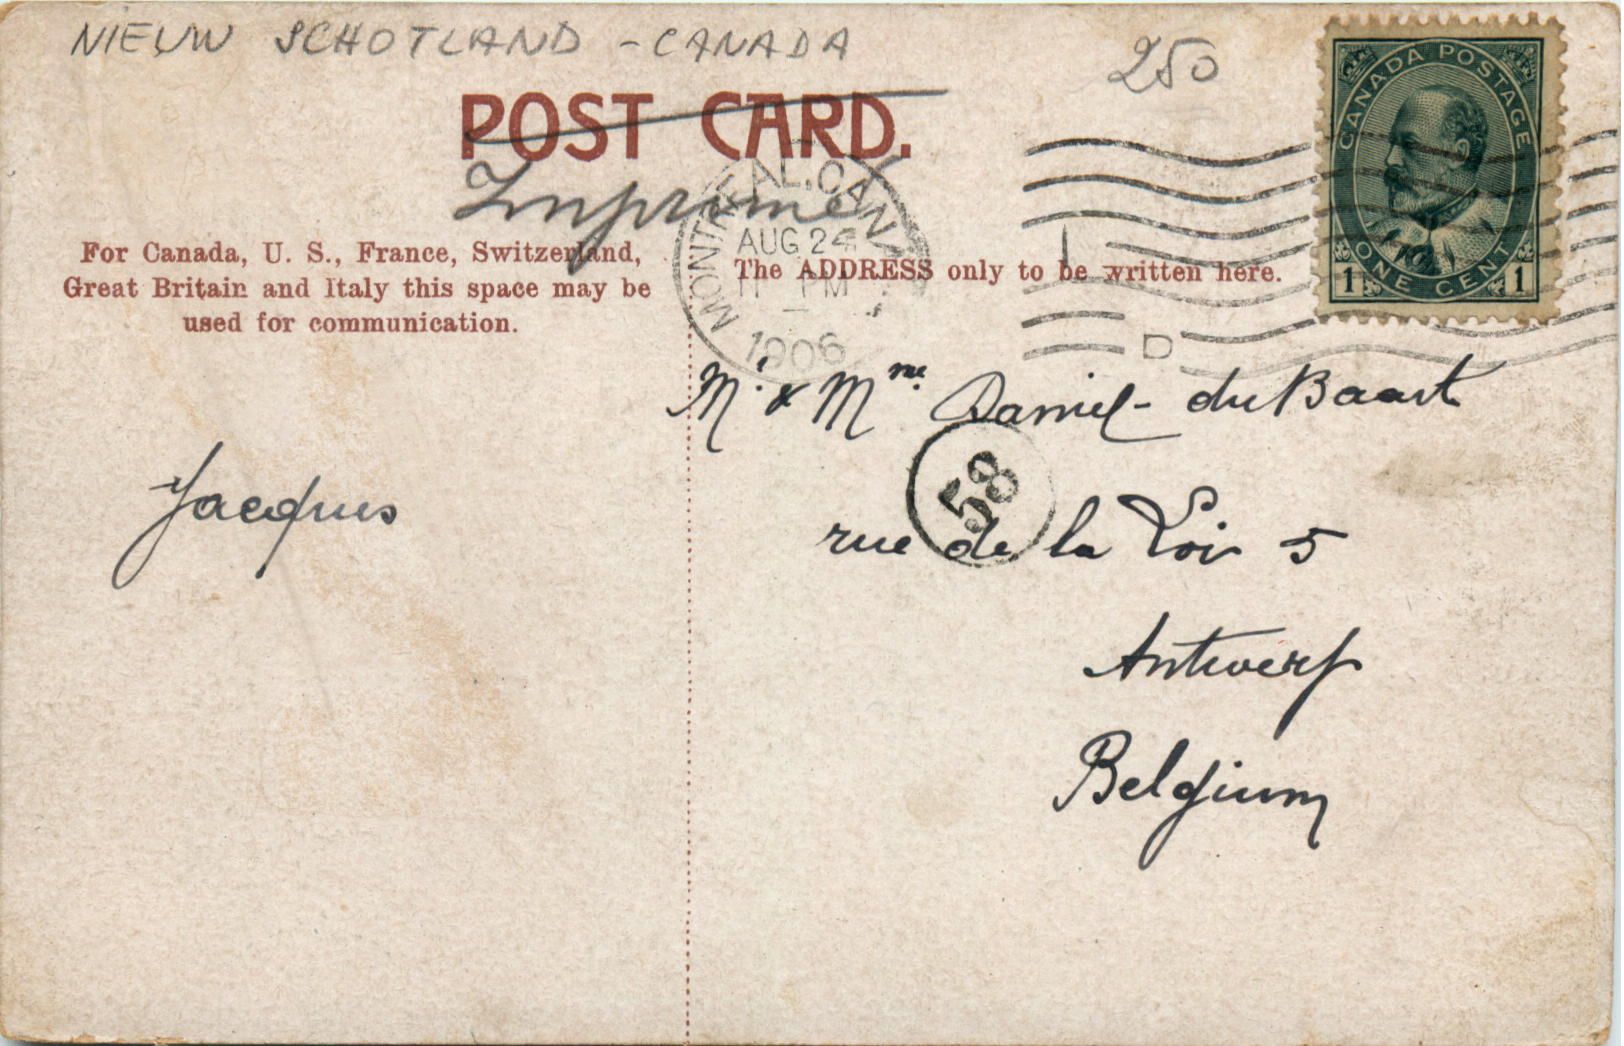 NIEUW SCHOTLAND - CANADA
250
POST CARD.
Imprimé
CANADA POSTAGE
ONE CENT
1 1
MONTREAL, CANADA
AUG 24
11 PM
1906
For Canada, U. S., France, Switzerland,
Great Britain and Italy this space may be
used for communication.
The ADDRESS only to be written here.
D
Mr. & Mme. Daniel - du Baart
58
rue de la Loi 5
Antwerp
Belgium
Jacques